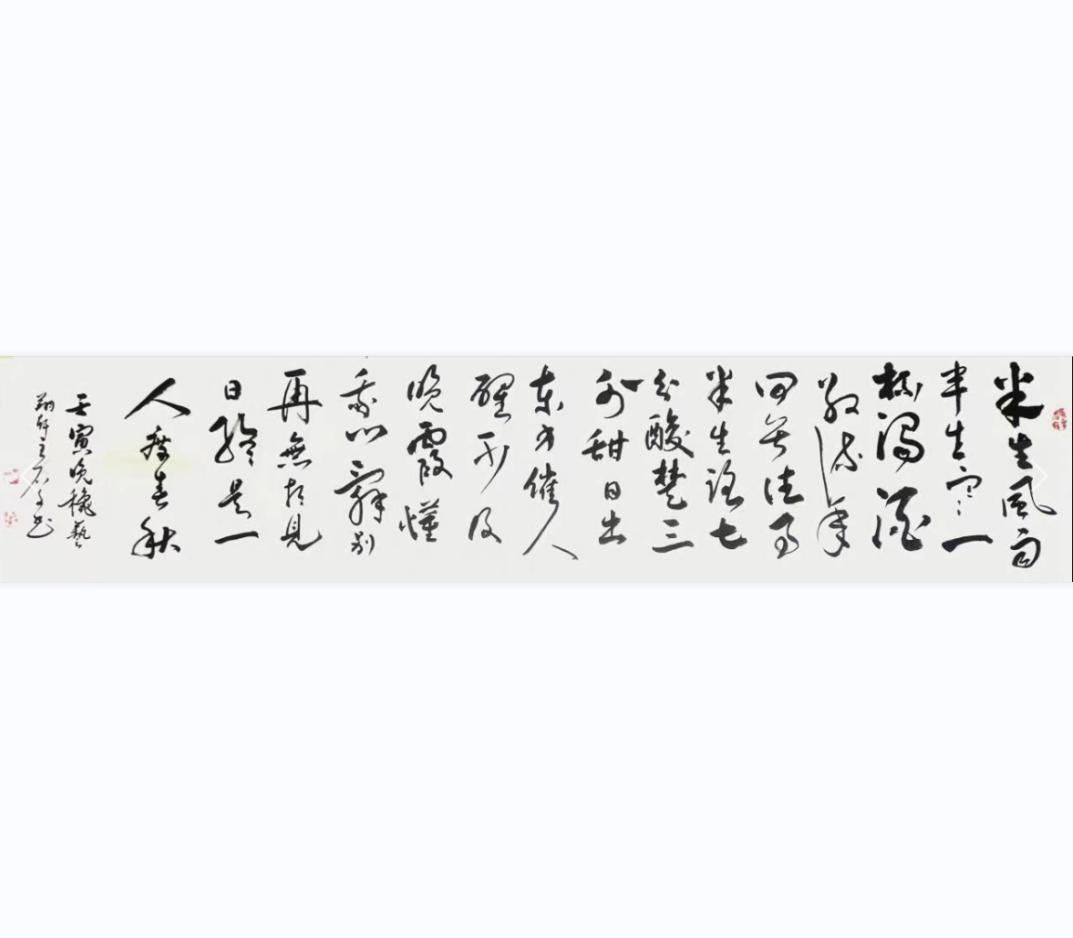 半生風雨
半生寒一
杯濁酒
敬流年
回首往事
半生路七
分酸楚三
分甜日出
東方催人
醒不及
晚霞懂
我心辭別
再無相見
日終是一
人度春秋
壬寅晚穐藝
翔軒主